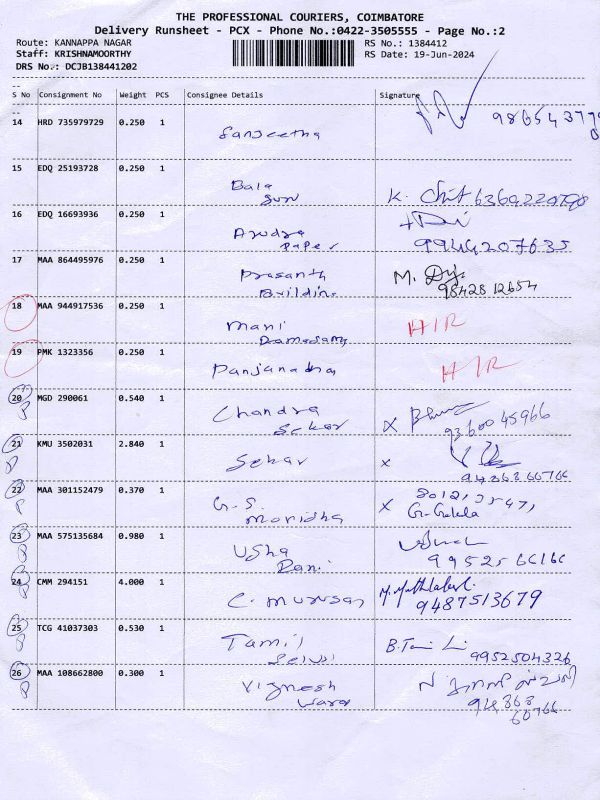 THE PROFESSIONAL COURIERS, COIMBATORE
Delivery Runsheet - PCX - Phone No.:0422-3505555 - Page No.:2
Route: KANNAPPA NAGAR
Staff: KRISHNAMOORTHY
DRS No.: DCJB138441202
RS No.: 1384412
RS Date: 19-Jun-2024
S No Consignment No Weight PCS Consignee Details Signature
14 HRD 735979729 0.250 1 Sangeetha
15 EDQ 25193728 0.250 1 Bala
16 EDQ 16693936 0.250 1 Arudra Paper 9944207635
17 MAA 864495976 0.250 1 Prasanth Building M. 98428 12654
18 MAA 944917536 0.250 1 Mani Ramasamy H/R
19 PMK 1323356 0.250 1 Panjanadha H/R
20 MGD 290061 0.540 1 Chandra Sekar X 93600 45966
21 KMU 3502031 2.840 1 Sekar x
22 MAA 301152479 0.370 1 G.S. X
23 MAA 575135684 0.980 1 Usha Rani 9952566166
24 CMM 294151 4.000 1 C. Murugan 9487513679
25 TCG 41037303 0.530 1 Tamil Selvi 9952504326
26 MAA 108662800 0.300 1 Vignesh Wara 94868 60766